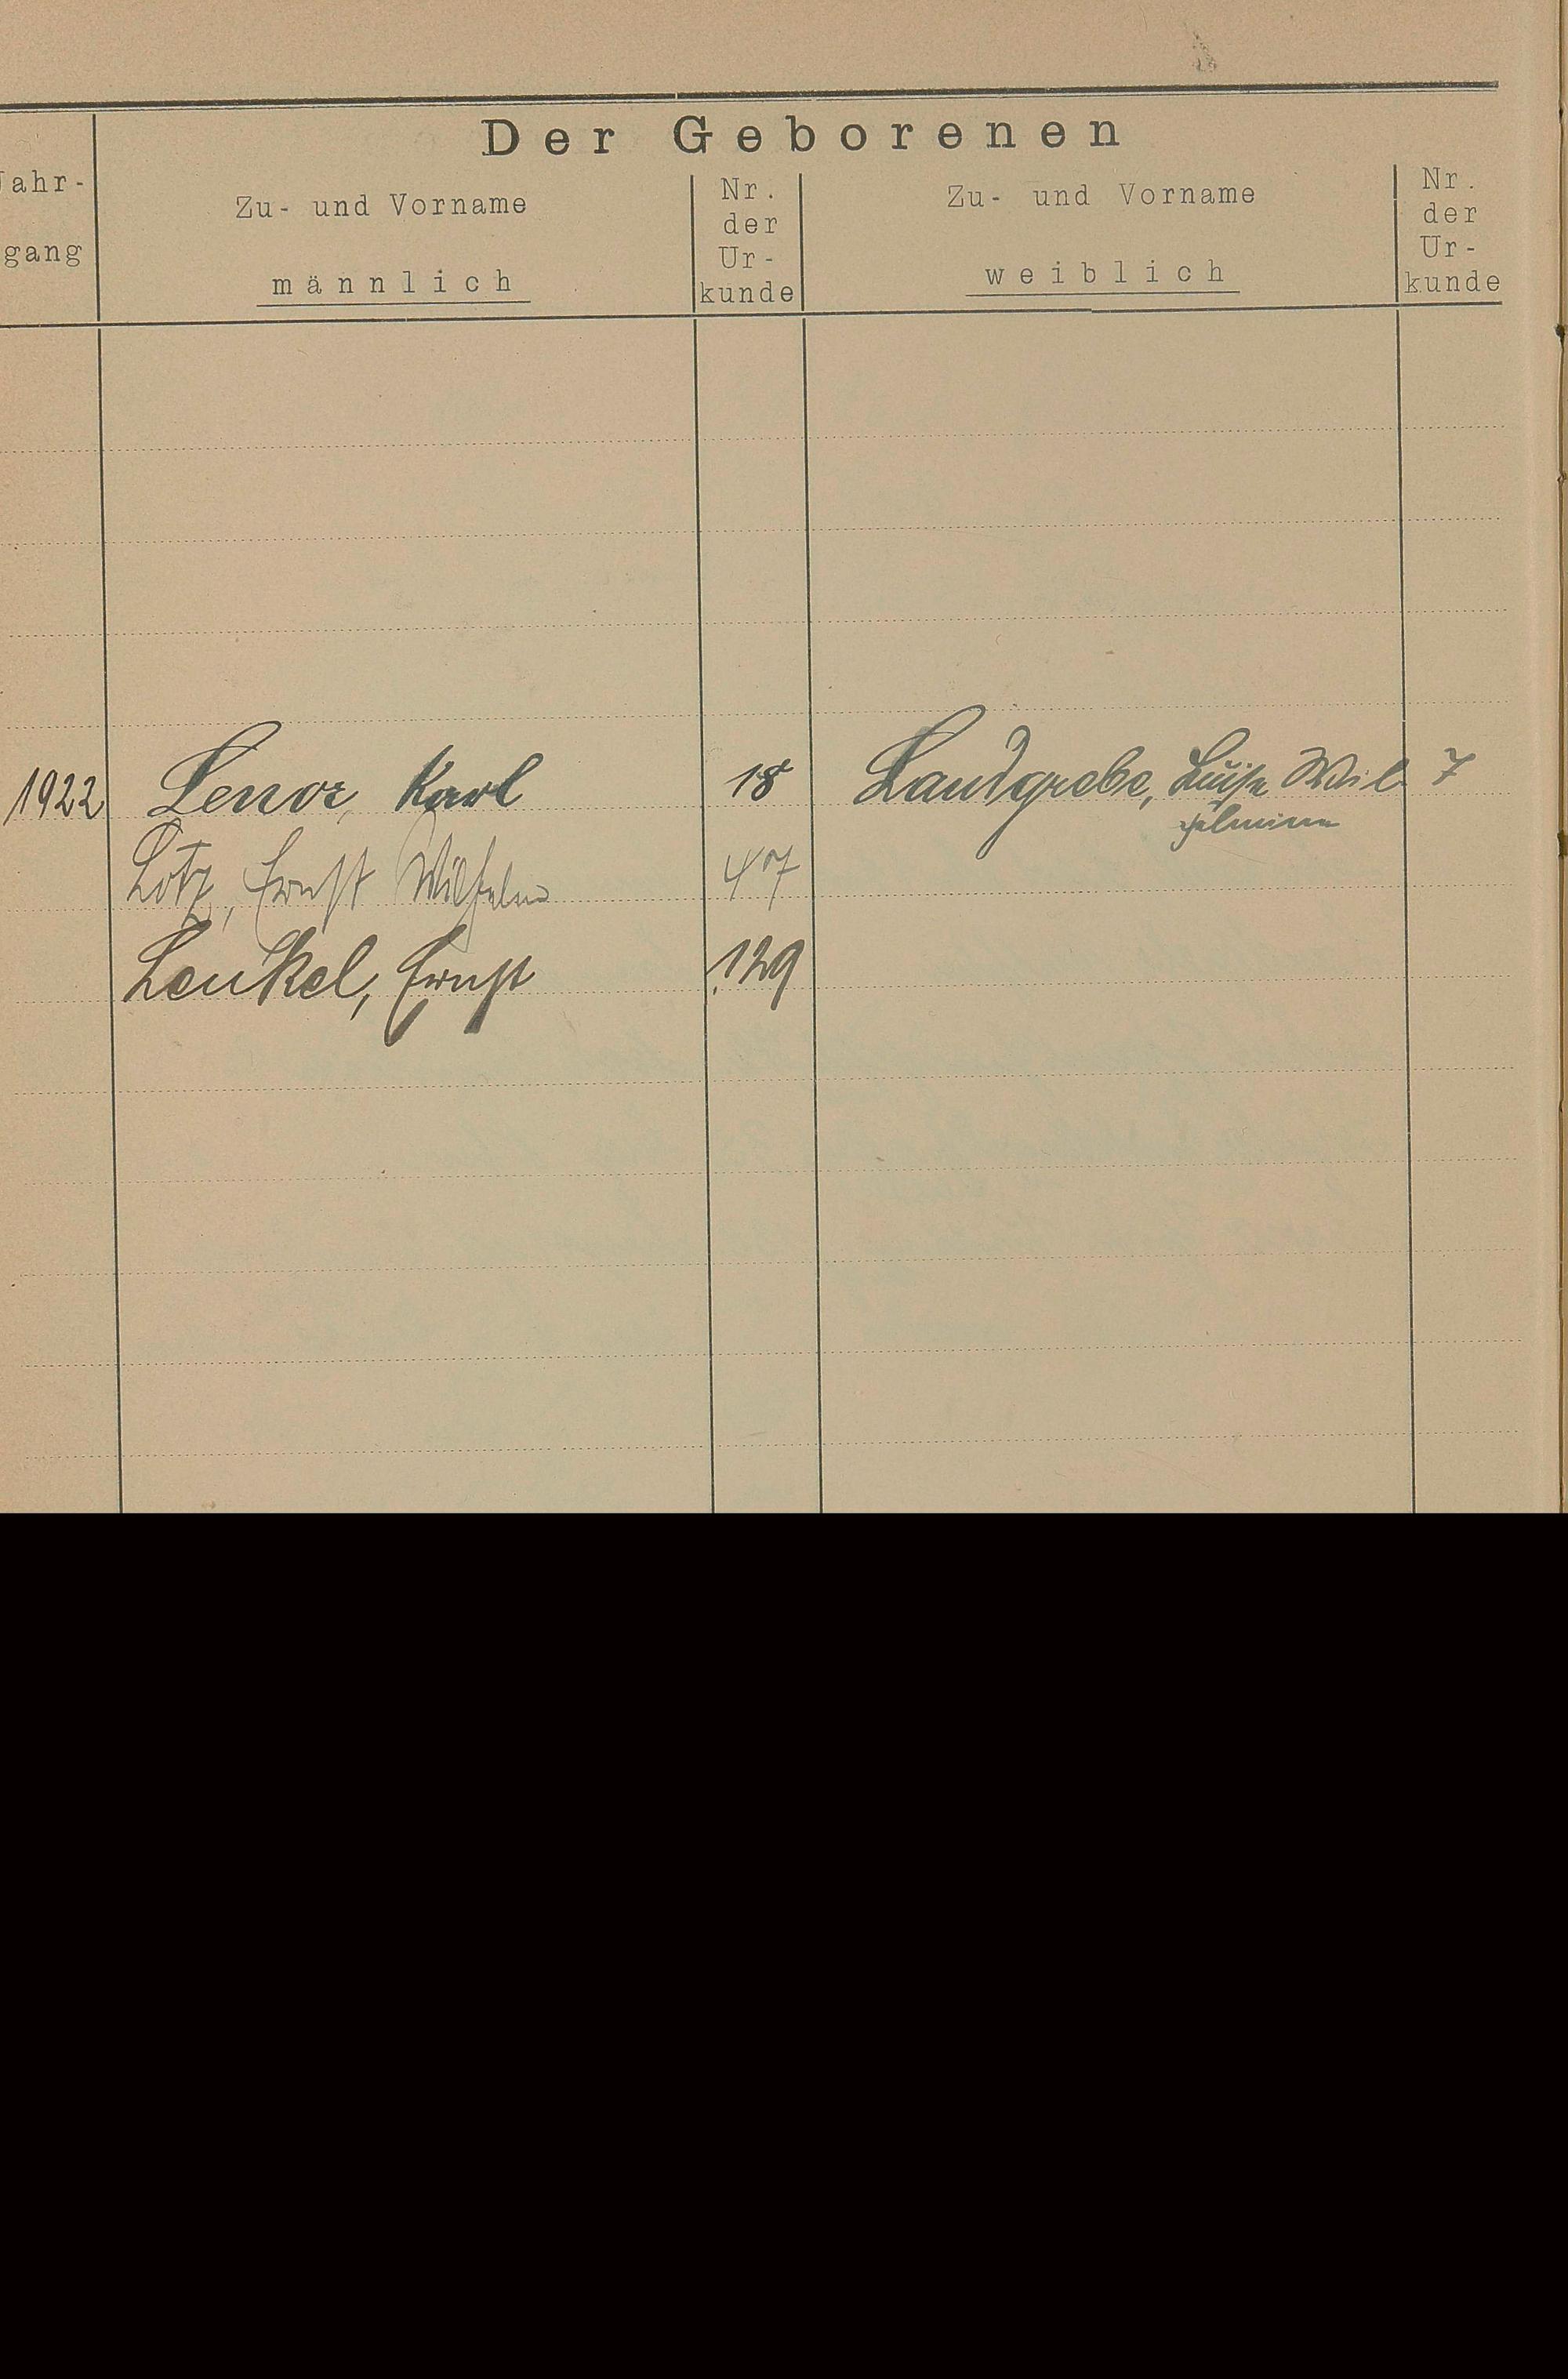 Der Geborenen
Jahr-
gang
Zu- und Vorname
männlich
Nr.
der
Ur-
kunde
Zu- und Vorname
weiblich
Nr.
der
Ur-
kunde
1922 Lenor, Karl 18 Landgrebe, Luise Wil- 7
helmine
Lotz, Ernst Wilhelm 47
Lenkel, Ernst 129